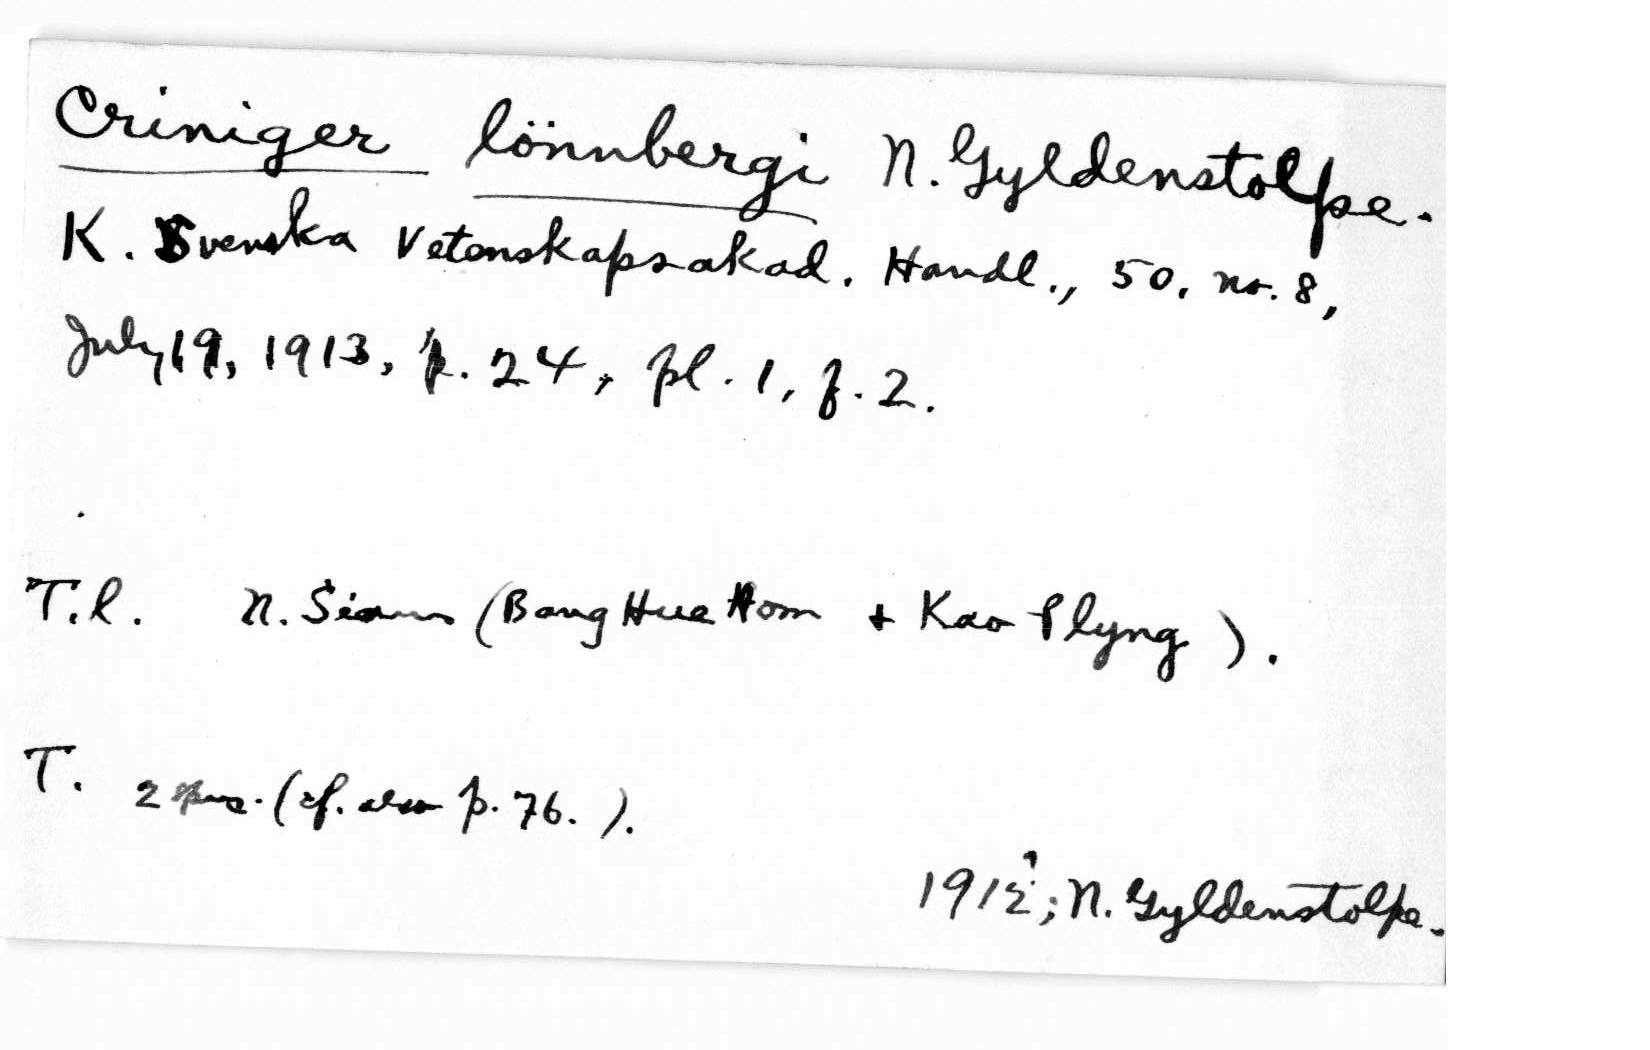 Criniger lönnbergi N. Gyldenstolpe.
K. Svenska Vetenskapsakad. Handl., 50, no. 8,
July 19, 1913, p. 24, pl. 1, f. 2.
T.l. N. Siam (Bang Hue Hom + Kao Plyng).
T. 2 spms. (cf. also p. 76.).
1912; N. Gyldenstolpe.